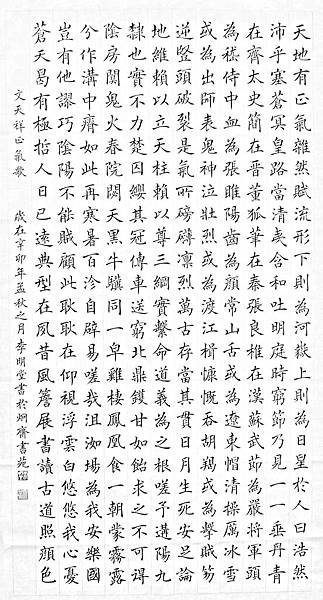 天地有正氣雜然賦流形下則為河嶽上則為日星於人曰浩然
沛乎塞蒼冥皇路當清夷含和吐明庭時窮節乃見一一垂丹青
在齊太史簡在晉董狐筆在秦張良椎在漢蘇武節為嚴將軍頭
為嵇侍中血為張睢陽齒為顏常山舌或為遼東帽清操厲冰雪
或為出師表鬼神泣壯烈或為渡江楫慷慨吞胡羯或為擊賊笏
逆豎頭破裂是氣所磅礴凜烈萬古存當其貫日月生死安足論
地維賴以立天柱賴以尊三綱實繫命道義為之根嗟予遘陽九
隸也實不力楚囚纓其冠傳車送窮北鼎鑊甘如飴求之不可得
陰房闃鬼火春院閟天黑牛驥同一皁雞棲鳳凰食一朝蒙霧露
分作溝中瘠如此再寒暑百沴自辟易嗟我沮洳場為我安樂國
豈有他謬巧陰陽不能賊顧此耿耿在仰視浮雲白悠悠我心憂
蒼天曷有極哲人日已遠典型在夙昔風簷展書讀古道照顏色
文天祥正氣歌 歲在辛卯年孟秋之月李明堂書於炯齋書苑